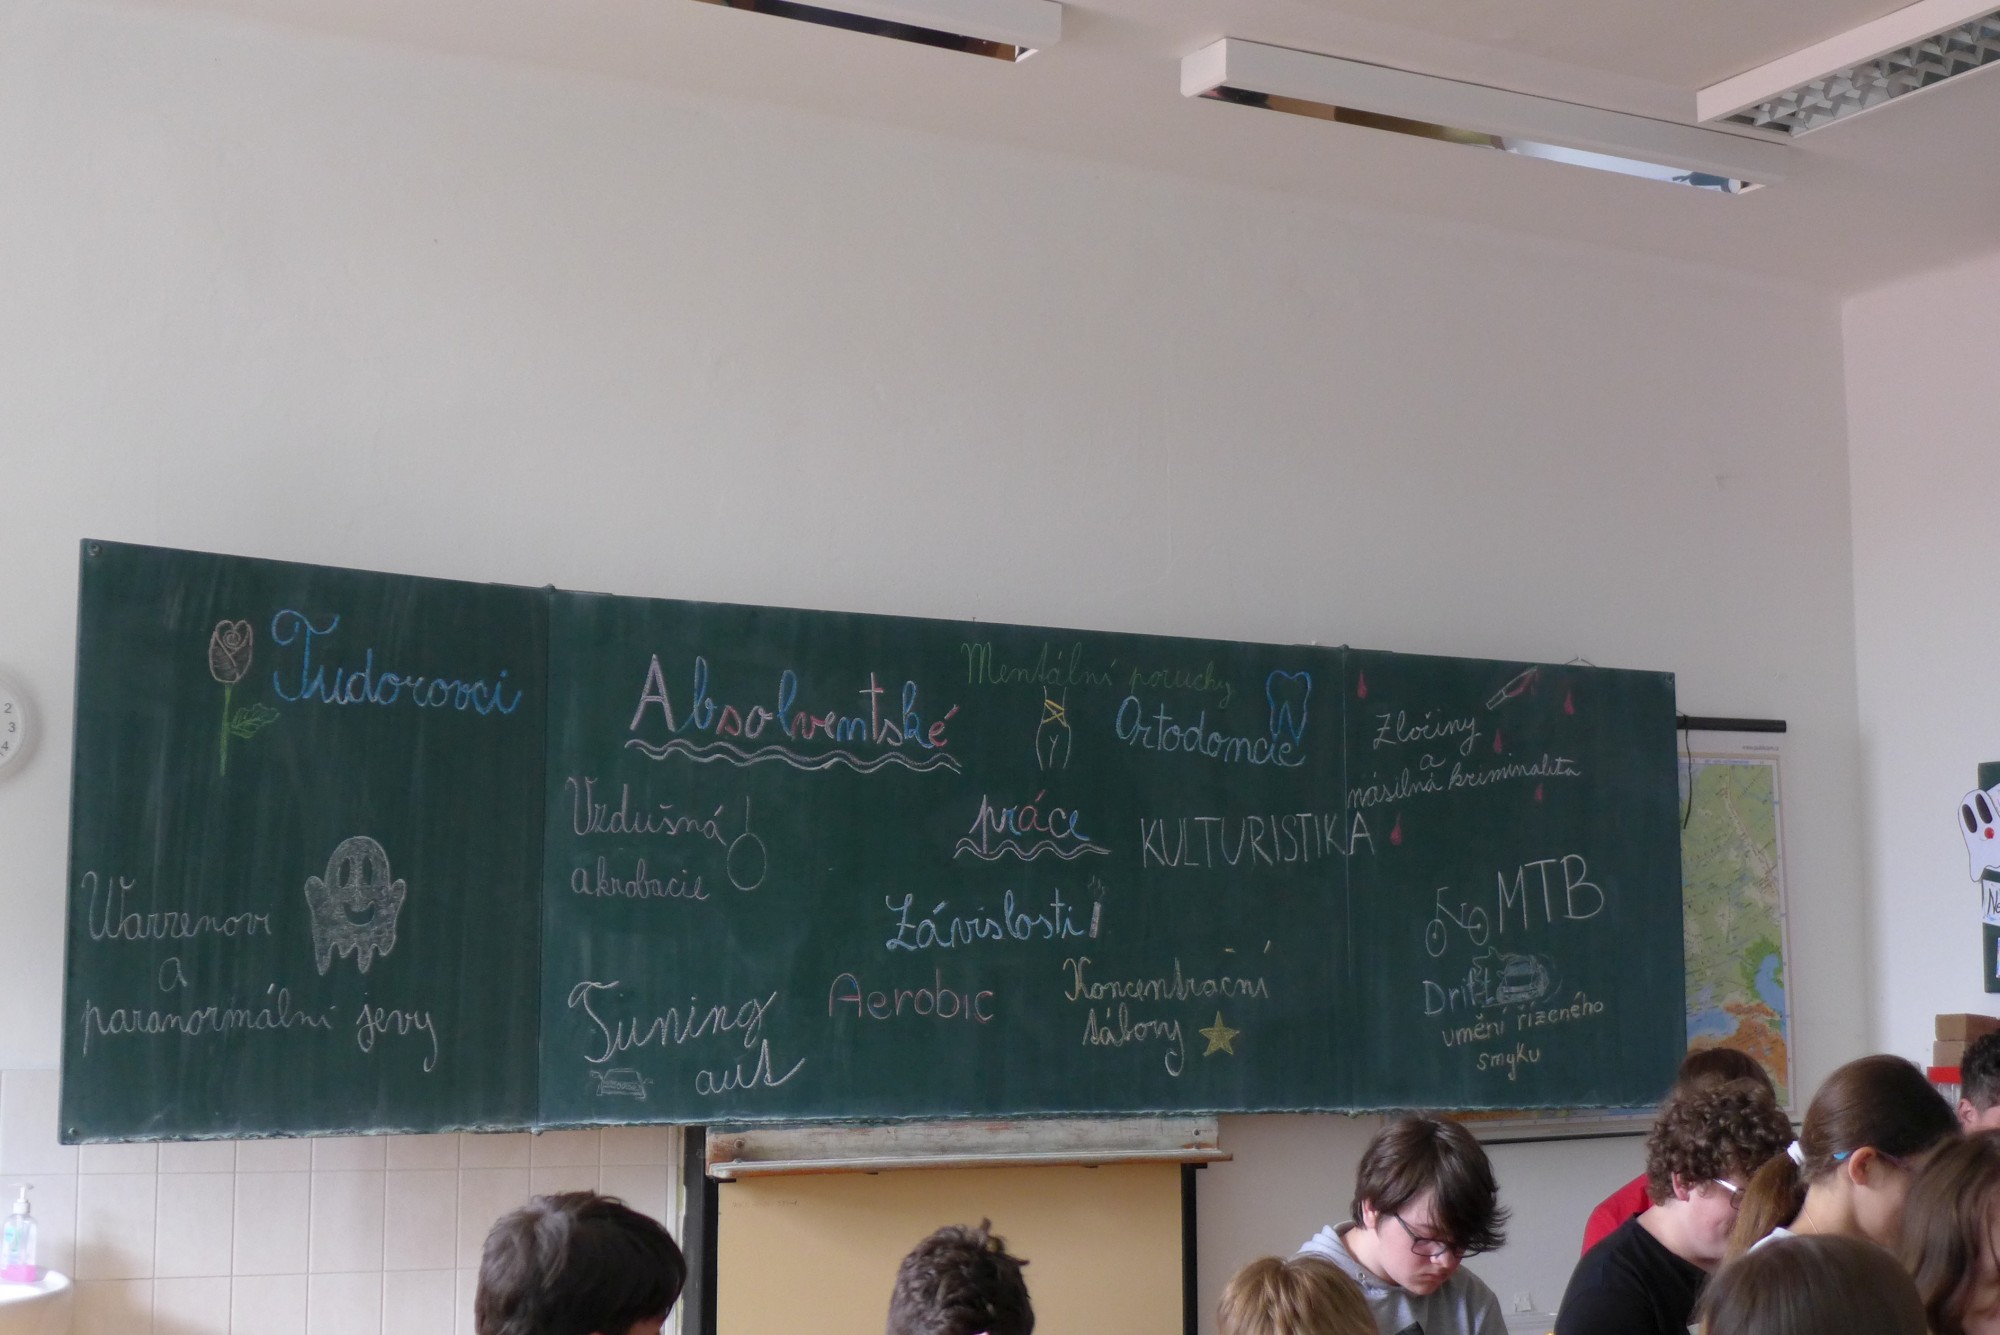 Tudorovci
Warrenovi
a
paranormální jevy
Absolventské
práce
Mentální poruchy
Ortodoncie
Vzdušná
akrobacie
KULTURISTIKA
Závislosti
Tuning
aut
Aerobic
Koncentrační
tábory
Zločiny
a
násilná kriminalita
MTB
Drift
umění řízeného
smyku
2
3
4